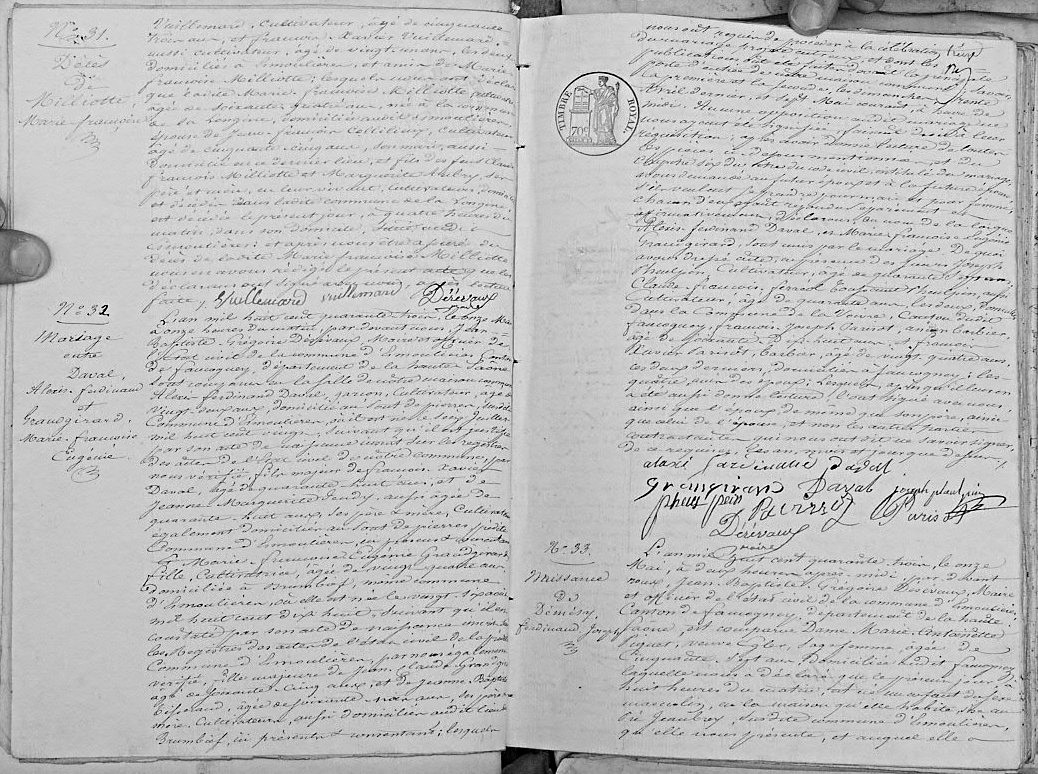 N.º 31.
Décès
de
Milliotte,
Marie françoise
Vuillemard, Cultivateur, âgé de cinquante
trois ans, et françois Xavier Vuillemard,
aussi cultivateur, âgé de vingt un ans, les deux
domiciliés à Esmoulières, et amis de Marie
françoise Milliotte; lesquels nous ont déclaré
que ladite Marie françoise Milliotte, cultivatrice
âgée de soixante quatre ans, née à la commune
de la Longine, domiciliée audit Esmoulières,
épouse de Jean françois, Cultivateur
âgé de cinquante cinq ans, son mari, aussi
domicilié en ce dernier lieu, et fille des feus Claude
françois Milliotte et Marguerite Aubry, ses
père et mère, en leur vivant, Cultivateurs, domiciliés
et décédés dans ladite commune de la Longine
est décédée le présent jour, à quatre heures du
matin, dans son domicile,
Esmoulières et après nous être assuré du
décès de ladite Marie françoise Milliotte
nous en avons rédigé le présent acte que les
déclarants ont signé avec nous, après lecture
faite, Vuillemard vuillemard Dérévaux
maire
N.º 32
Mariage
entre
Daval,
Alexis ferdinand
et
Grandgirard,
Marie françoise
Eugénie.
L'an mil huit cent quarante trois, le onze Mai
à onze heures du matin, par devant nous, Jean
Baptiste Grégoire Dérévaux, Maire et officier de
l'état civil de la commune d'Esmoulières, Canton
de faucogney, département de la haute Saône
sont comparus en la salle de notre maison commune
Alexis ferdinand Daval, garçon, Cultivateur, âgé de
vingt deux ans, domicilié au Sant de pierres, susdite
Commune d'Esmoulières, où il est né le sept Juillet
mil huit cent vingt, suivant qu'il est justifié
par son acte de naissance inscrit sur les registres
des actes de l'état civil de cette commune, par
nous vérifié, fils majeur de françois Xavier
Daval, âgé de quarante huit ans, et de
Jeanne Marguerite Jeudy, aussi âgée de
quarante huit ans, ses père et mère, Cultivateurs
également domiciliés au Sant de pierres, susdite
Commune d'Esmoulières, ici présents et consentants
Et Marie françoise Eugénie Grandgirard
fille, Cultivatrice, âgée de vingt quatre ans
domiciliée à Brumbief, même commune
d'Esmoulières, où elle est née le vingt
mil huit cent dix huit, suivant qu'il est
constaté par son acte de naissance inscrit sur
les Registres des actes de l'état civil de la présente
Commune d'Esmoulières, par nous également
vérifié, fille majeure de Jean Claude Grandgirard
âgé de soixante cinq ans, et de Jeanne Baptiste
âgée de soixante ans, ses père et
mère, Cultivateurs, aussi domiciliés audit lieu de
Brumbief, ici présents et consentants; lesquels
TIMBRE ROYAL
70.c
nous ont requis de procéder à la célébration
du mariage projeté entre eux, et dont les
publications ont été faites devant la principale
porte d'entrée de notre maison commune, savoir
la première et la seconde, les dimanches trente
Avril dernier, et sept Mai courant, à heure de
midi. Aucune opposition audit mariage ne
nous ayant été signifiée, faisant droit à leur
réquisition, après avoir donné lecture de toutes
les pièces ci dessus mentionnées, et du
chapitre six du titre du code civil, intitulé du mariage,
avons demandé au futur époux et à la future épouse,
s'ils veulent se prendre pour mari et pour femme,
chacun d'eux ayant répondu séparément et
affirmativement, Déclarons au nom de la loi que
Alexis ferdinand Daval, et Marie françoise Eugénie
Grandgirard, sont unis par le mariage. De quoi
avons dressé acte, en présence des sieurs Joseph
Pheulpin, Cultivateur, âgé de quarante
Claude françois ferréol Pheulpin, aussi
Cultivateur, âgé de quarante ans, les deux domiciliés
dans la Commune de la Voivre, Canton dudit
faucogney, françois Joseph Parisot, ancien barbier
âgé de soixante dix huit ans, et françois
Xavier Parisot, barbier, âgé de vingt quatre ans
les deux derniers, domiciliés à faucogney; les
quatre, amis des époux; Lesquels, après qu'il leur en
a été aussi donné lecture, l'ont signé avec nous,
ainsi que l'époux de même que son père, ainsi
que celui de l'épouse, et non les autres parties
contractantes qui nous ont dit ne savoir signer
de ce requises, les an, mois et jour que dessus,
alexi ferdinand Daval
grangirard Daval joseph pheulpin
pheulpin Parisot Parisot
Dérévaux
maire
N.º 33.
Naissance
de
Démésy,
ferdinand Joseph
L'an mil huit cent quarante trois, le onze
Mai, à deux heures après midi, par devant
nous, Jean Baptiste Grégoire Dérévaux, Maire
et officier de l'état civil de la commune d'Esmoulières,
Canton de faucogney, département de la haute
Saône, est comparue Dame Marie Antoinette
Piquet, veuve Egler, Sage femme, âgée de
Cinquante sept ans, domiciliée audit faucogney
laquelle nous a déclaré que ce présent jour, à
huit heures du matin, est né un enfant du sexe
masculin, en la maison qu'elle habite, sise au
susdite commune d'Esmoulières,
qu'elle nous présente, et auquel elle a